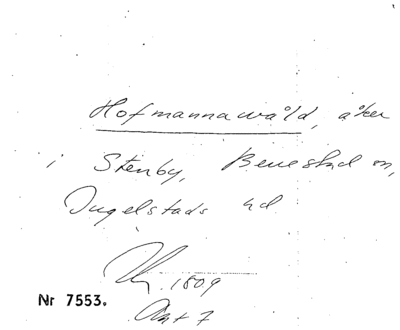 Hofmannawåld, åker
i Stenby, Benestad sn,
Ingelstads hd
1809
Nr 7553.
Akt 7